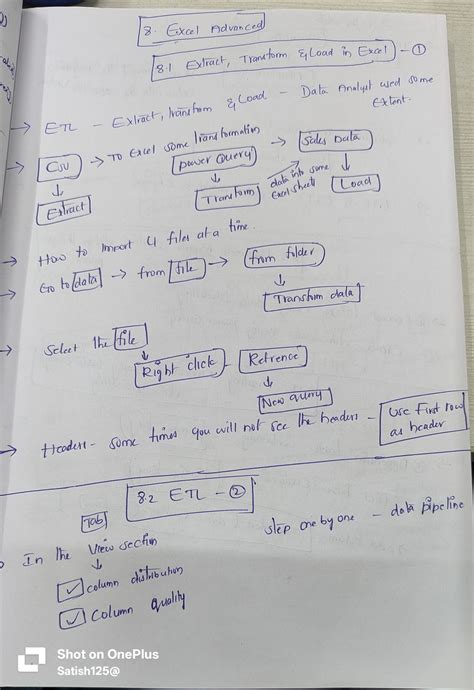 8. Excel Advanced
8.1 Extract, Transform & Load in Excel - ①
→ ETL - Extract, Transform & Load - Data Analyst used some
Extent.
→ CSV → To Excel some Transformation
Power Query → Sales Data
Extract
Transform data into some Load
Excel sheets
→ How to Import 4 files at a time.
→ Go to data → from file → from folder
Transfrom data
→ Select the file
Right click - Refrence
New query
→ Headers - some times you will not see the headers - Use First row
as header
8.2 ETL - ②
Tab step one by one - data pipeline
In the View section
✓ column distribution
✓ Column quality
Shot on OnePlus
Satish125@